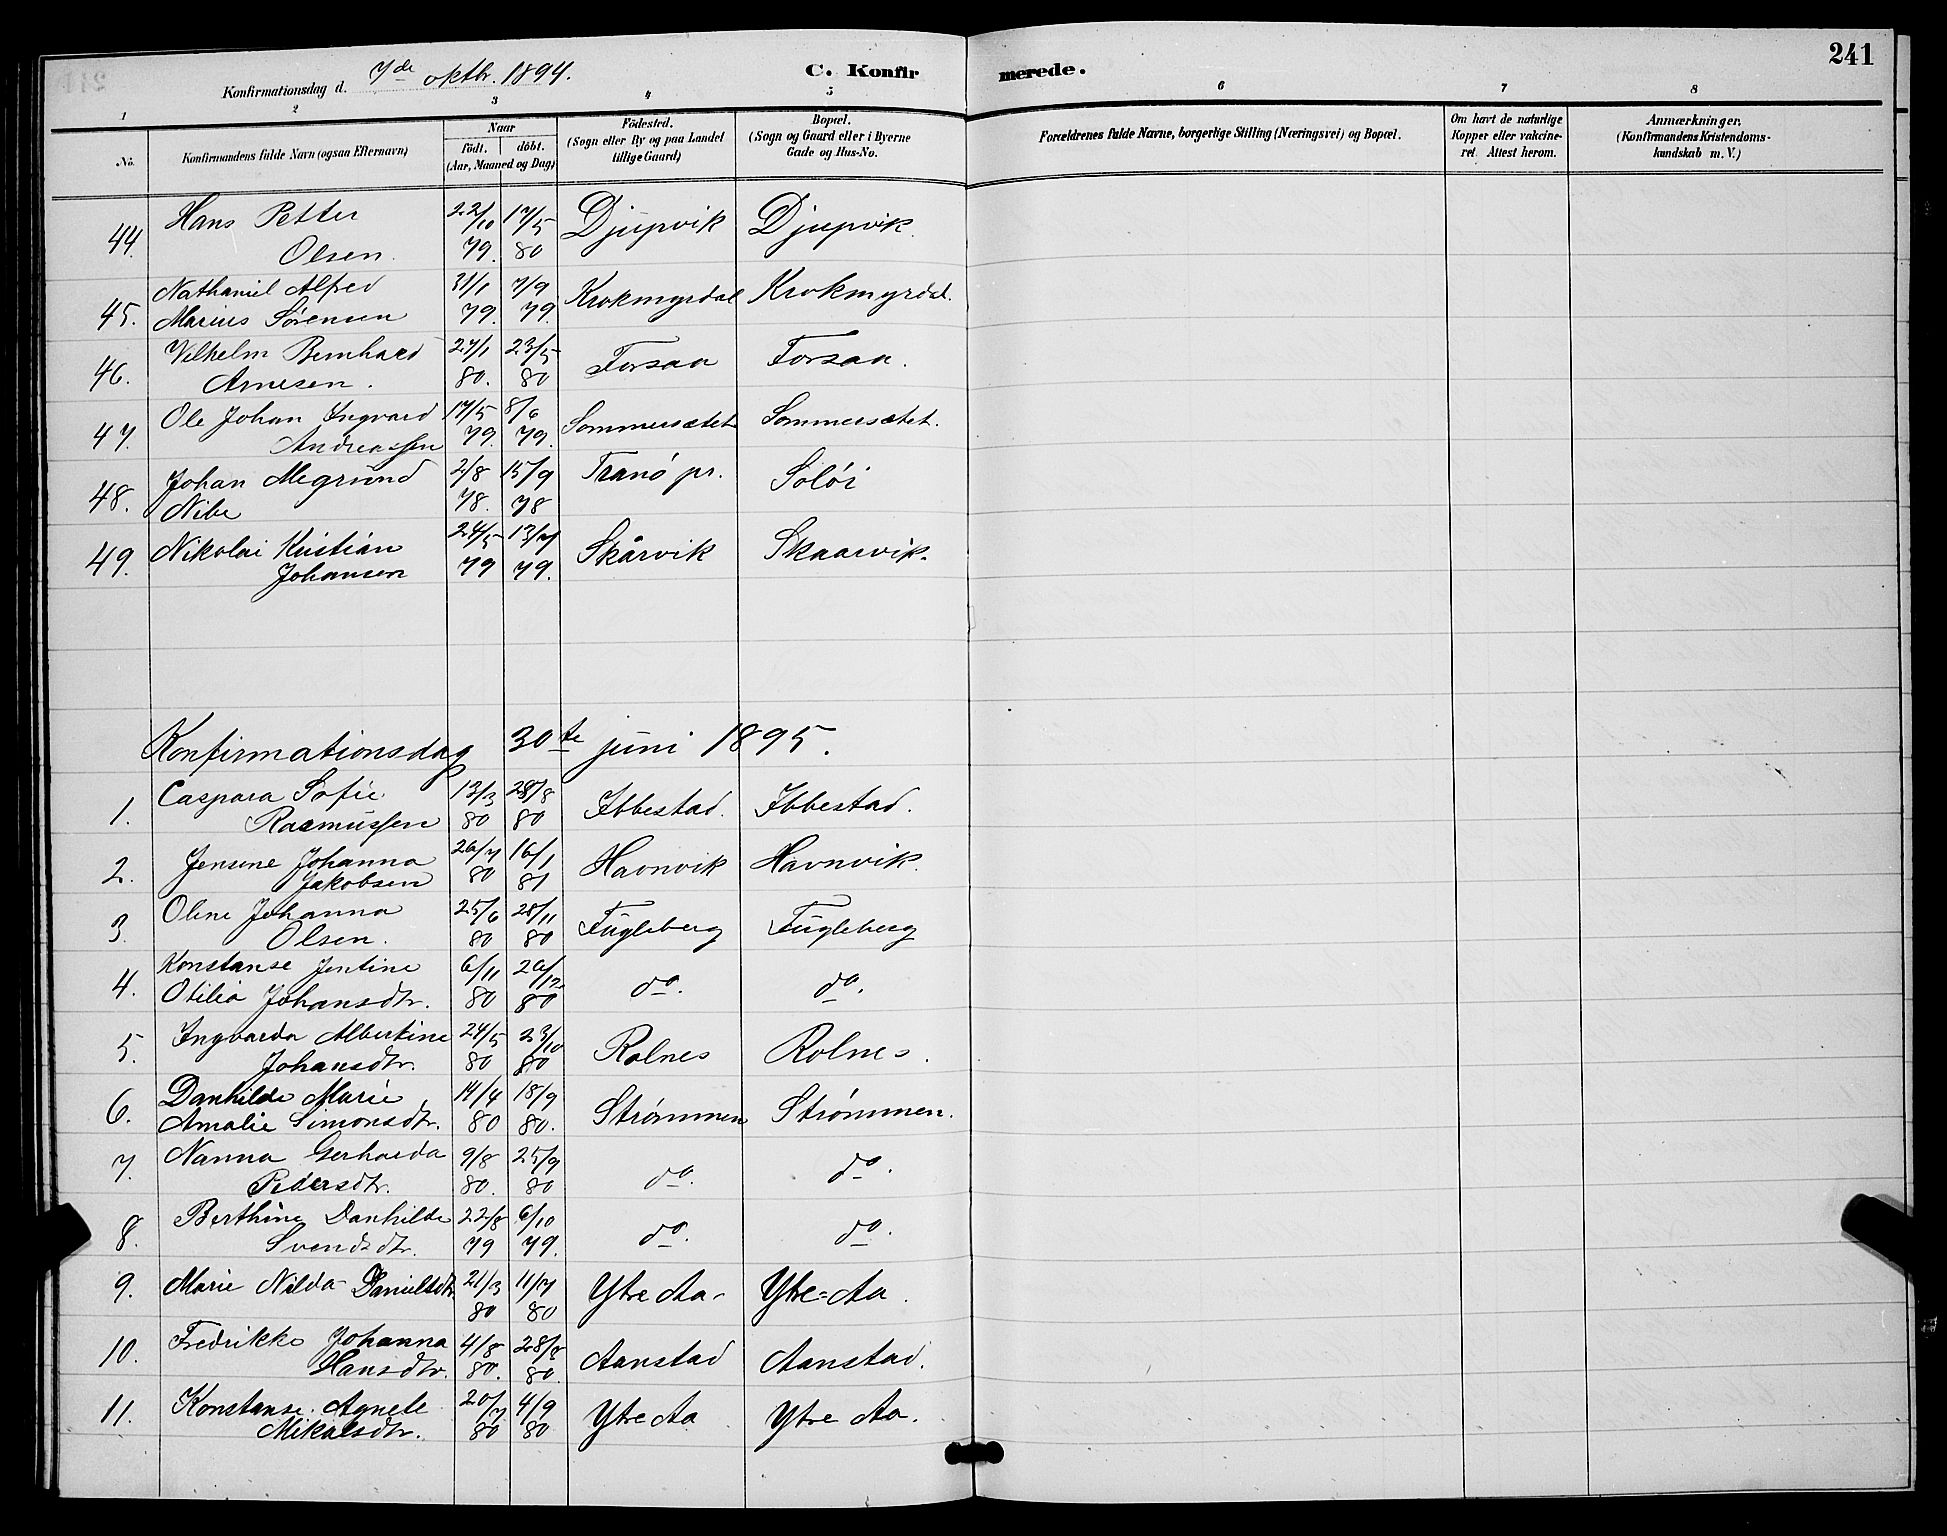 241
Konfirmationsdag d. 7de oktbr. 1894.
C. Konfirmerede.
1 2 3 4 5 6 7 8
No. Konfirmandens fulde Navn (ogsaa Efternavn) Naar födt. döbt. (Aar, Maaned og Dag) Födested. (Sogn eller By og paa Landet tillige Gaard) Bopæl. (Sogn og Gaard eller i Byerne Gade og Hus-No. Forældrenes fulde Navne, borgerlige Stilling (Næringsvei) og Bopæl. Om havt de naturlige Kopper eller vakcineret. Attest herom. Anmærkninger. (Konfirmandens Kristendomskundskab m. V.)
44. Hans Petter Olsen. 22/10 79. 17/5 80 Djupvik Djupvik.
45. Nathaniel Alfred Marius Sørensen 31/1 79. 7/9 79. Krokmyrdal Krokmyrdal.
46. Vilhelm Bernhard Arnesen. 27/1 80. 23/5 80 Forsaa Forsaa.
47. Ole Johan Ingvard Andreassen 17/5 79. 8/6 79. Sommersætet Sommersætet.
48. Johan Megrund Nibe 2/8 78. 15/9 78 Tranö pr. Solöi
49. Nikolai Kristian Johansen 24/5 79 13/7 79. Skårvik Skaarvik.
Konfirmationsdag 30te juni 1895.
1. Caspara Sofie Rasmussen 13/3 80 28/8 80 Ibbestad. Ibbestad.
2. Jensine Johanna Jakobsen 26/7 80 16/1 81 Havnvik Havnvik.
3. Oline Johanna Olsen. 25/6 80 28/11 80 Fugleberg Fugleberg
4. Konstanse Jentine Otilia Johansdtr. 6/11 80 26/12 80 do. do.
5. Ingvarda Albertine Johansdtr. 24/5 80 23/10 80 Rolnes Rolnes.
6. Danhilde Marie Amalie Simonsdtr. 14/4 80 18/9 80. Strømmen Strømmen.
7. Nanna Gerharda Pedersdtr. 9/8 80. 25/9 80 do. do.
8. Berthine Danhilde Svendsdtr. 22/8 79 6/10 79. do. do.
9. Marie Nilda Danielsdtr 21/3 80 11/7 80 Ytre Aa Ytre=Aa.
10. Fredrikke Johanna Hansdtr. 4/8 80. 28/8 80. Aanstad Aanstad.
11. Konstanse Agnete Mikalsdtr. 20/7 80 4/9 80 Ytre Aa Ytre Aa.